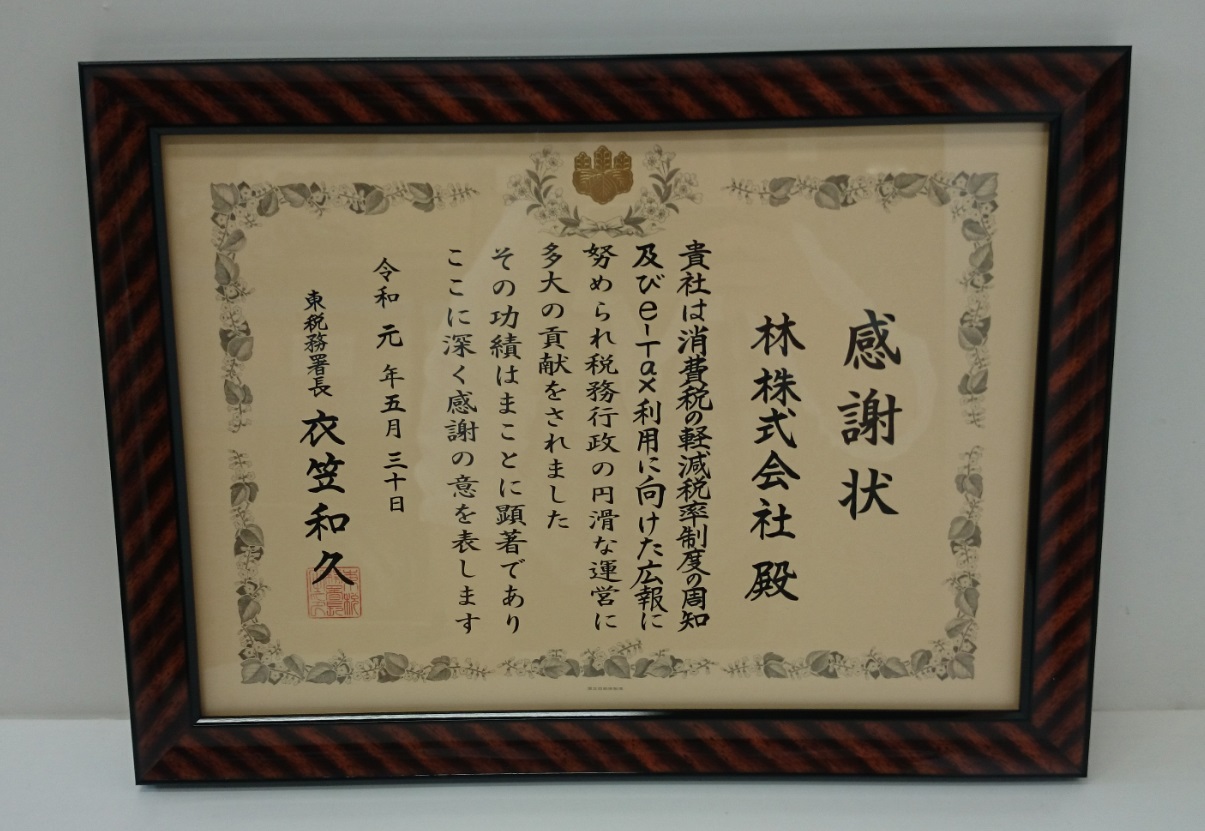 感謝状
林株式会社 殿
貴社は消費税の軽減税率制度の周知
及びe-Tax利用に向けた広報に
努められ税務行政の円滑な運営に
多大の貢献をされました
その功績はまことに顕著であり
ここに深く感謝の意を表します
令和元年五月三十日
東税務署長 衣笠和久